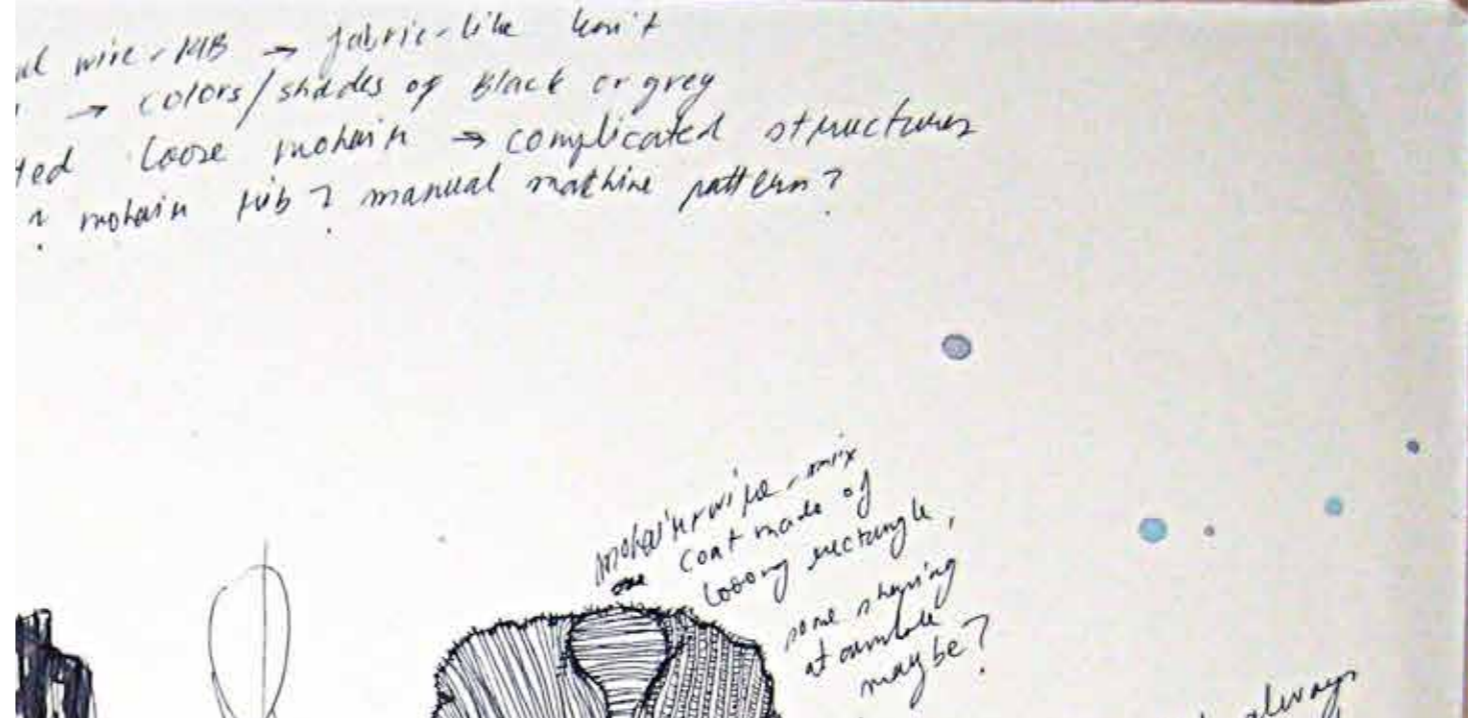 wire - RIB → fabric-like knit
→ colors/shades of Black or grey
ted loose mohair → complicated structures
mohair rib? manual machine pattern?
mohair+wire-mix
coat made of
rectangle,
some shaping
at armhole
maybe?
always